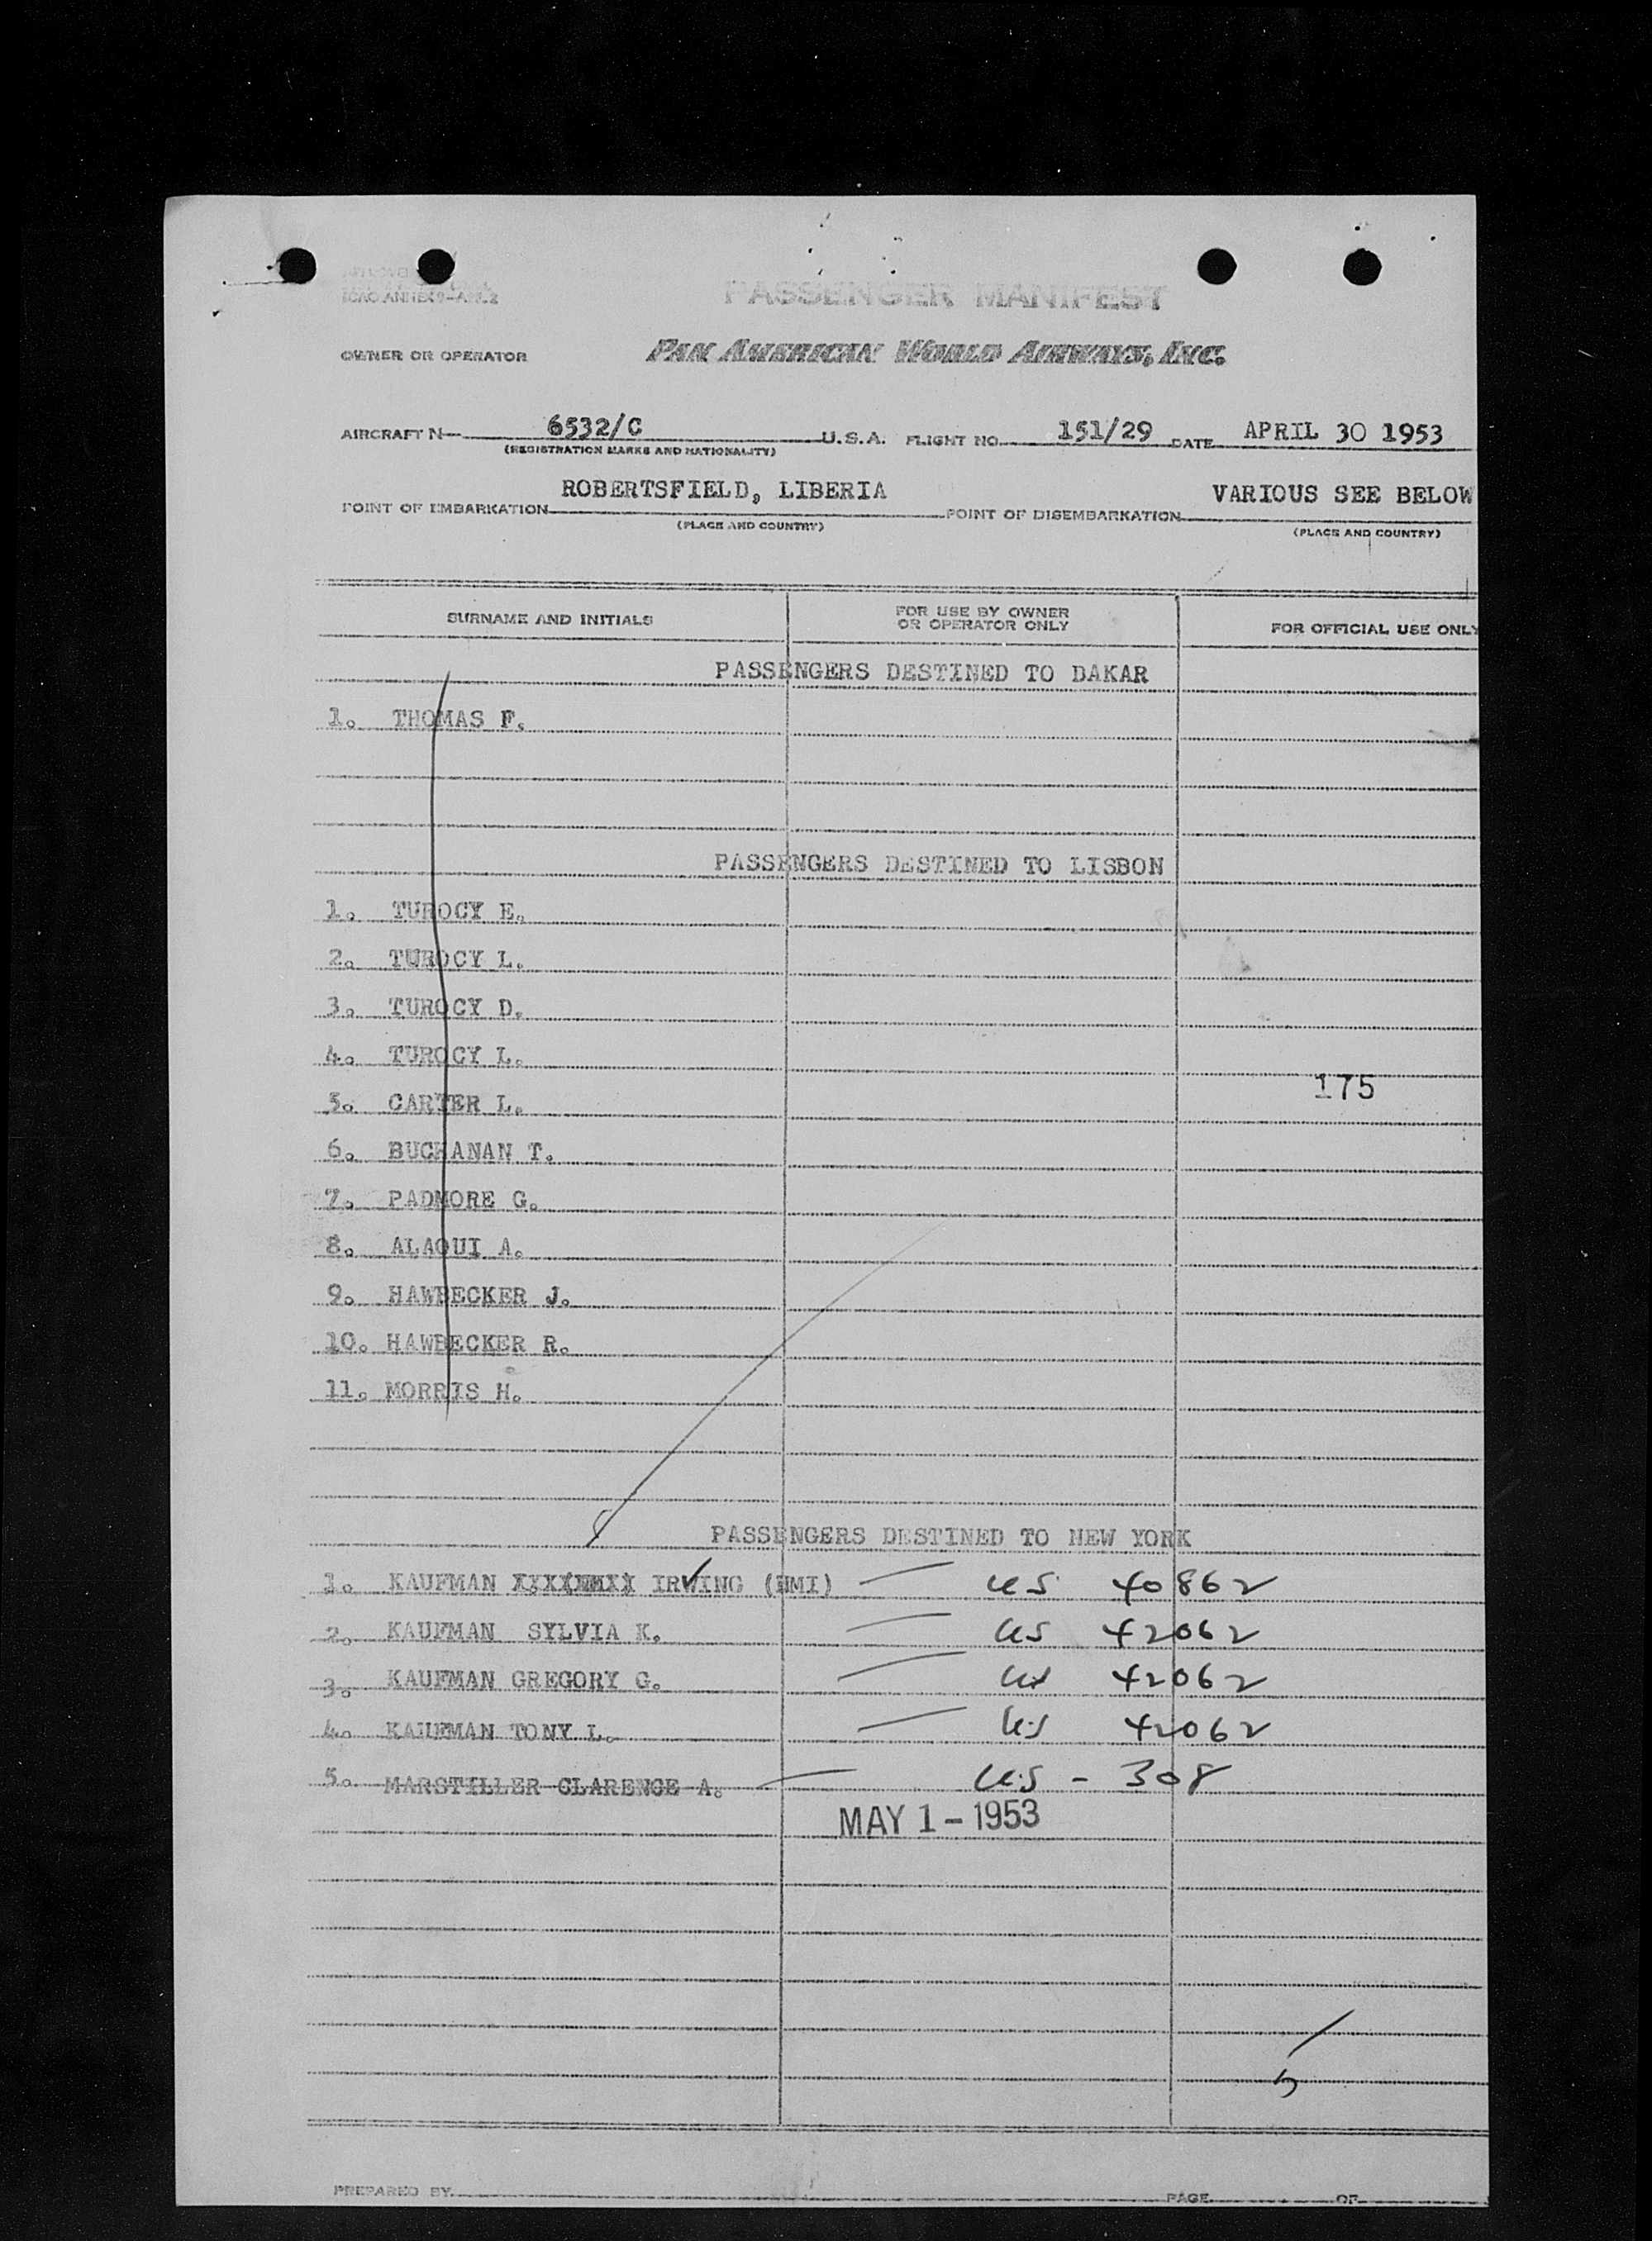 ICAO ANNEX 9-APP. 2
PASSENGER MANIFEST
OWNER OR OPERATOR PAN AMERICAN WORLD AIRWAYS, INC.
AIRCRAFT N 6532/C U.S.A. FLIGHT NO. 151/29 DATE APRIL 30 1953
(REGISTRATION MARKS AND NATIONALITY)
POINT OF EMBARKATION ROBERTSFIELD, LIBERIA POINT OF DISEMBARKATION VARIOUS SEE BELOW
(PLACE AND COUNTRY) (PLACE AND COUNTRY)
SURNAME AND INITIALS FOR USE BY OWNER OR OPERATOR ONLY FOR OFFICIAL USE ONLY
PASSENGERS DESTINED TO DAKAR
1. THOMAS F.
PASSENGERS DESTINED TO LISBON
1. TUROCY E.
2. TUROCY L.
3. TUROCY D.
4. TUROCY L.
175
5. CARTER L.
6. BUCHANAN T.
7. PADMORE G.
8. ALAOUI A.
9. HAWBECKER J.
10. HAWBECKER R.
11. MORRIS H.
PASSENGERS DESTINED TO NEW YORK
1. KAUFMAN IRVING (NMI) — US 40862
2. KAUFMAN SYLVIA K. — US 42062
3. KAUFMAN GREGORY G. — US 42062
4. KAUFMAN TONY L. — US 42062
5. MARSTILLER CLARENCE A. — US - 308
MAY 1 - 1953
5
PREPARED BY PAGE OF